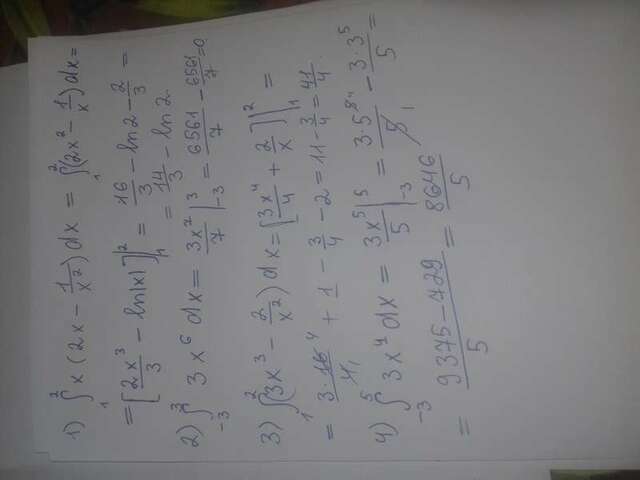 1) ∫₁² x (2x − 1/x²) dx = ∫₁² (2x² − 1/x) dx =
= [2x³/3 − ln|x|] |₁² = 16/3 − ln2 − 2/3 =
= 14/3 − ln2
2) ∫₋₃³ 3x⁶ dx = 3x⁷/7 |₋₃³ = 6561/7 − 6561/7 = 0
3) ∫₁² (3x³ − 2/x²) dx = [3x⁴/4 + 2/x] |₁² =
= 3·16/4 + 1 − 3/4 − 2 = 11 − 3/4 = 41/4
4) ∫₋₃⁵ 3x⁴ dx = 3x⁵/5 |₋₃⁵ = 3·5⁵/5 − 3·3⁵/5 =
= (9375 − 729)/5 = 8646/5